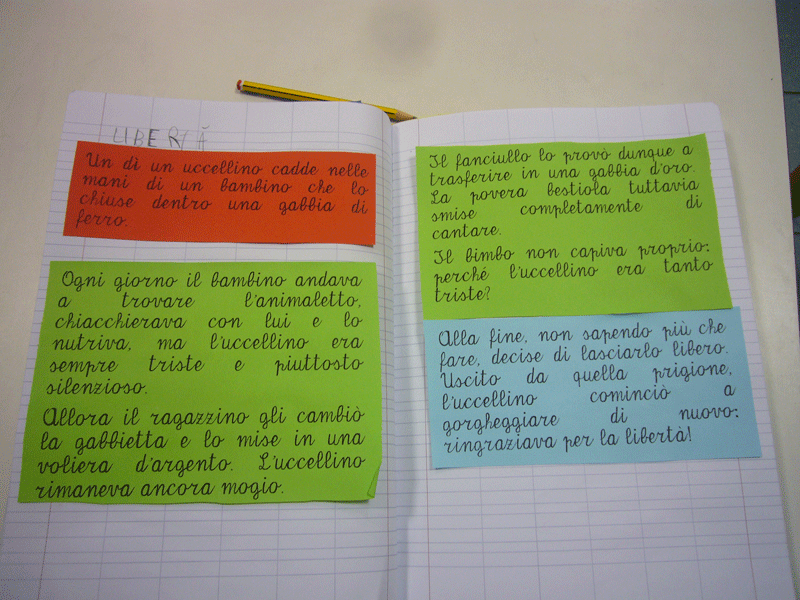 LIBERTÀ
Un dì un uccellino cadde nelle
mani di un bambino che lo
chiuse dentro una gabbia di
ferro.
Ogni giorno il bambino andava
a trovare l'animaletto,
chiacchierava con lui e lo
nutriva, ma l'uccellino era
sempre triste e piuttosto
silenzioso.
Allora il ragazzino gli cambiò
la gabbietta e lo mise in una
voliera d'argento. L'uccellino
rimaneva ancora mogio.
Il fanciullo lo provò dunque a
trasferire in una gabbia d'oro.
La povera bestiola tuttavia
smise completamente di
cantare.
Il bimbo non capiva proprio:
perché l'uccellino era tanto
triste?
Alla fine, non sapendo più che
fare, decise di lasciarlo libero.
Uscito da quella prigione,
l'uccellino cominciò a
gorgheggiare di nuovo:
ringraziava per la libertà!